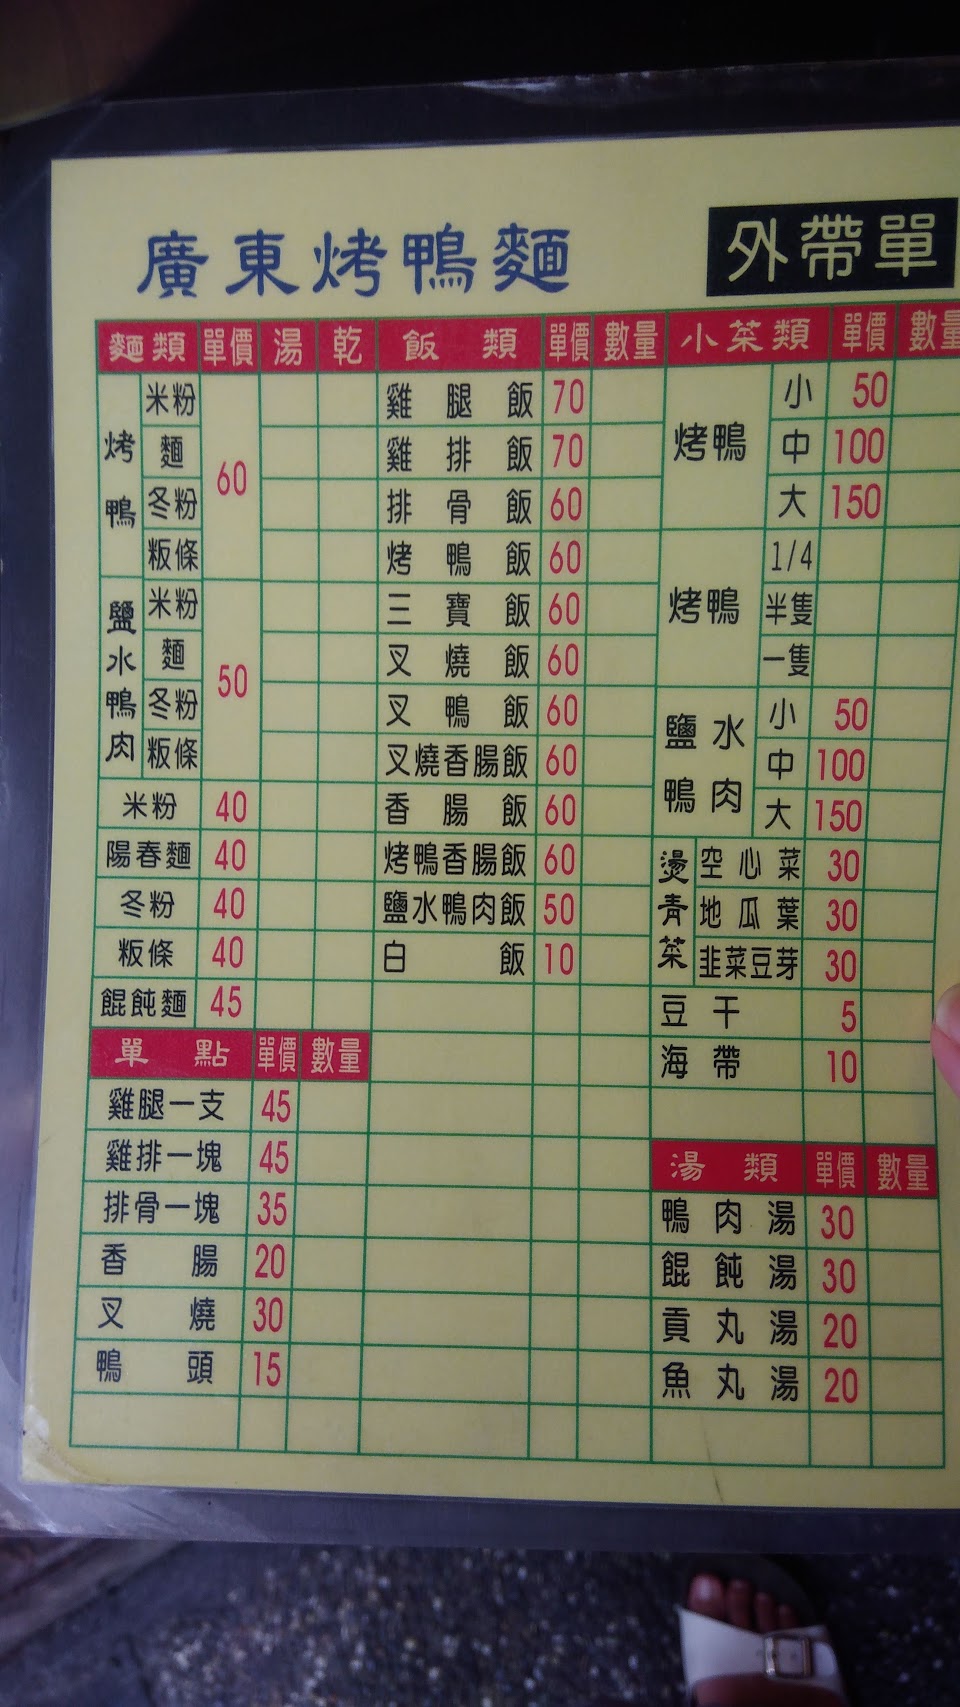 廣東烤鴨麵
外帶單
麵類 單價 湯 乾
烤鴨 米粉 60
麵
冬粉
粄條
鹽水鴨肉 米粉 50
麵
冬粉
粄條
米粉 40
陽春麵 40
冬粉 40
粄條 40
餛飩麵 45
單點 單價 數量
雞腿一支 45
雞排一塊 45
排骨一塊 35
香腸 20
叉燒 30
鴨頭 15
飯類 單價 數量
雞腿飯 70
雞排飯 70
排骨飯 60
烤鴨飯 60
三寶飯 60
叉燒飯 60
叉鴨飯 60
叉燒香腸飯 60
香腸飯 60
烤鴨香腸飯 60
鹽水鴨肉飯 50
白飯 10
小菜類 單價 數量
烤鴨 小 50
中 100
大 150
烤鴨 1/4
半隻
一隻
鹽水鴨肉 小 50
中 100
大 150
燙青菜 空心菜 30
地瓜葉 30
韭菜豆芽 30
豆干 5
海帶 10
湯類 單價 數量
鴨肉湯 30
餛飩湯 30
貢丸湯 20
魚丸湯 20